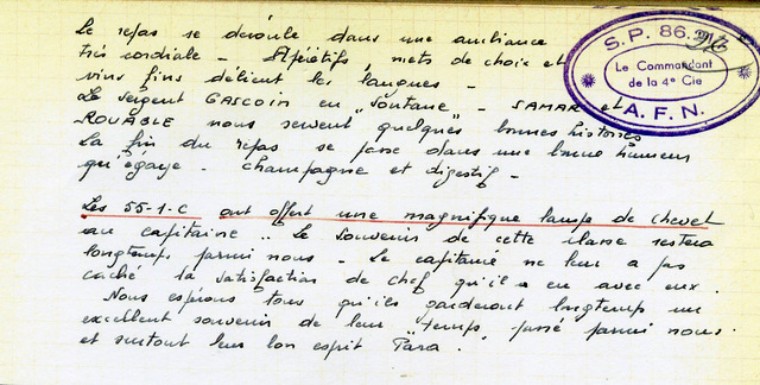 Le repas se déroule dans une ambiance
très cordiale - Apéritifs, mets de choix et
vins fins délient les langues -
Le sergent GASCOIN en "Soutane" - SAMAR et
ROUABLE nous servent quelques bonnes histoires
La fin du repas se passe dans une bonne humeur
qu'égaye - champagne et digestif -
Les 55-1-C ont offert une magnifique lampe de chevet
au capitaine .. Le souvenir de cette classe restera
longtemps parmi nous - Le capitaine ne leur a pas
caché la satisfaction de chef qu'il a eu avec eux.
Nous espérons tous qu'ils garderont longtemps un
excellent souvenir de leur "temps" passé parmi nous.
et surtout leur bon esprit Para.
S.P. 86.
Le Commandant
de la 4e Cie
A.F.N.